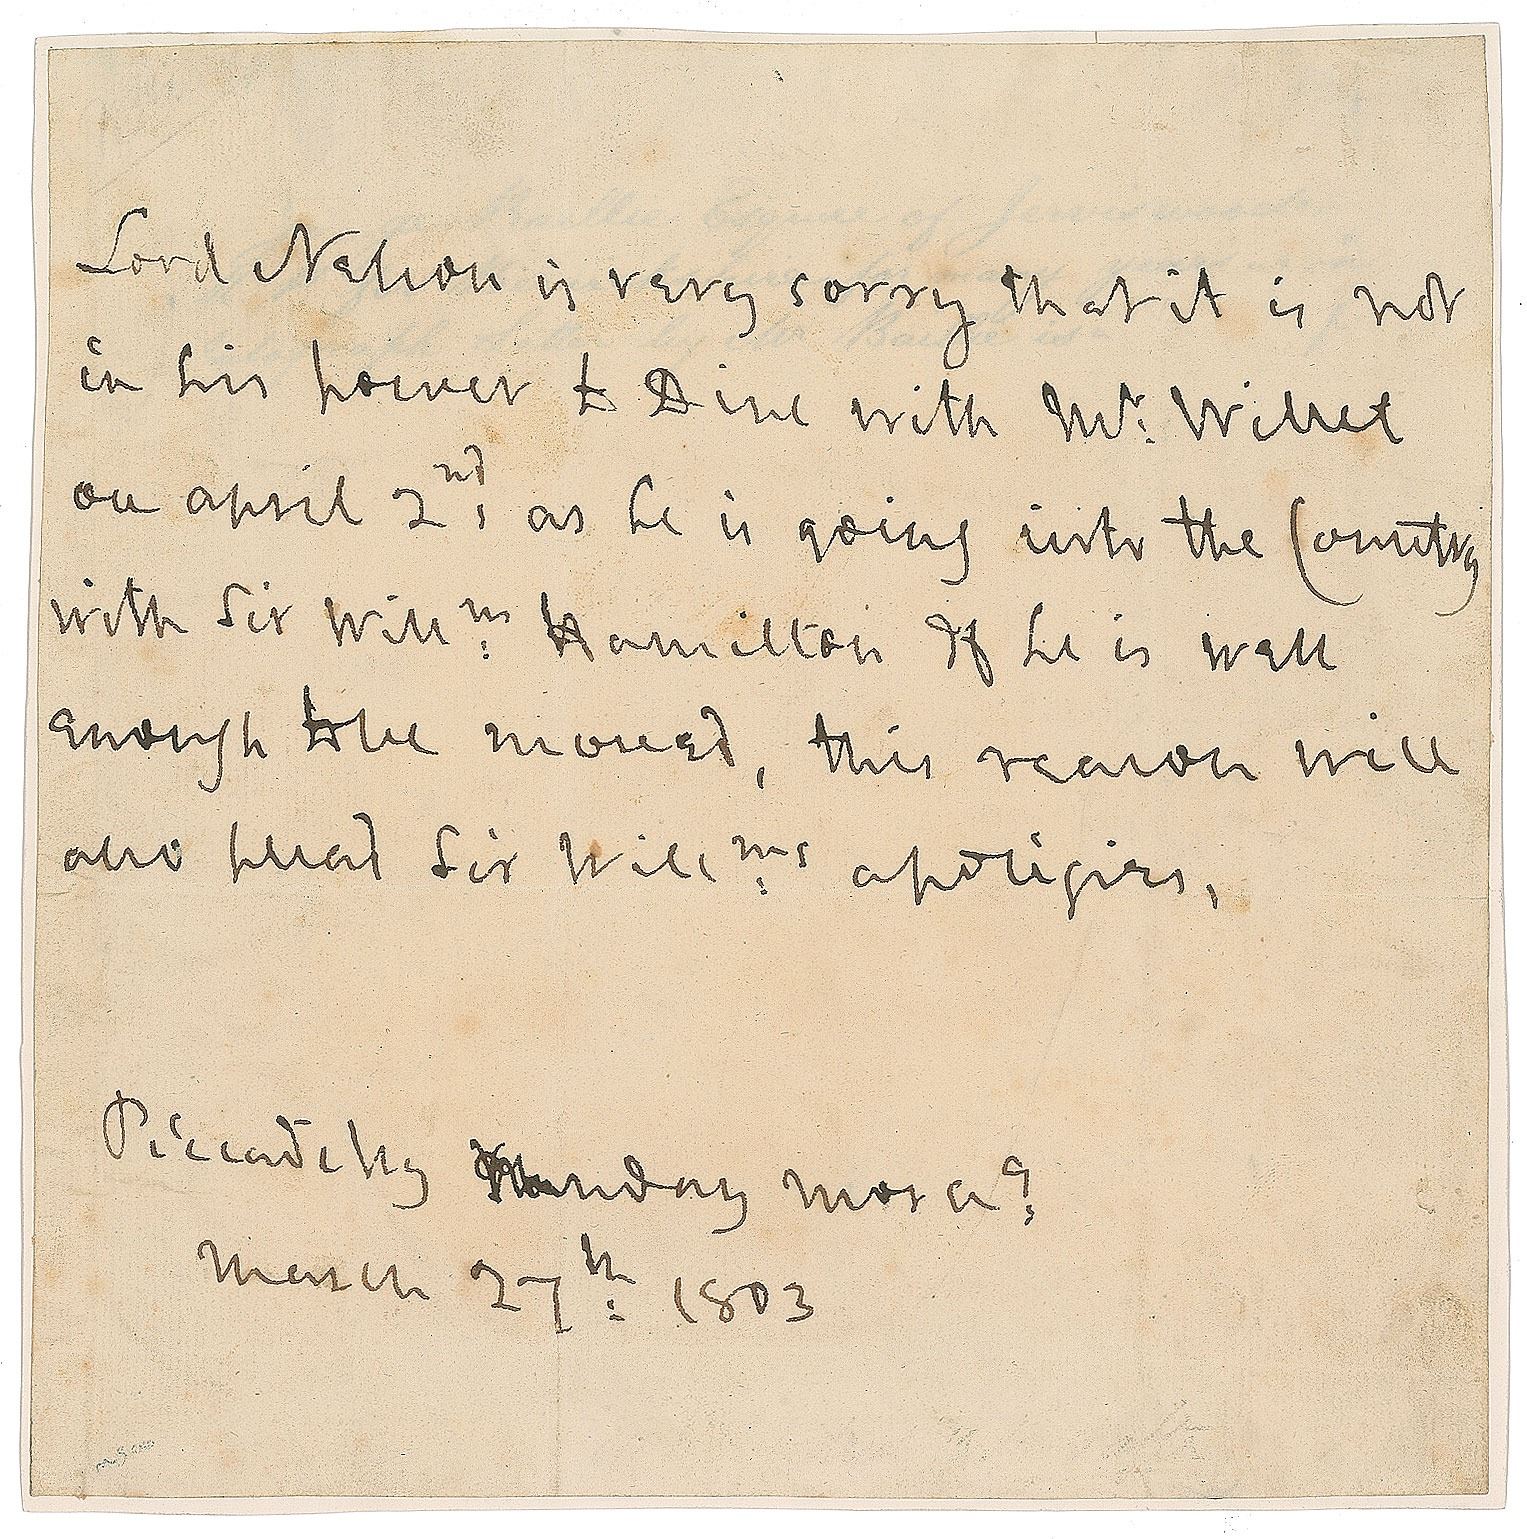 Lord Nelson is very sorry that it is not
in his power to Dine with Mr: Willet
on april 2nd, as he is going into the Country
with Sir Willm: Hamilton If he is well
enough to be moved, this reason will
also plead Sir Willms: apoligies,
Piccadilly Sunday morng:
March 27th: 1803